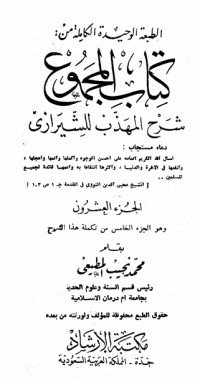 الطبعة الوحيدة الكاملة من:
كتاب المجموع
شرح المهذب للشيرازي
دعاء مستجاب :
اسأل الله الكريم اتمامه على أحسن الوجوه وأكملها وأتمها وأعجلها ،
وأنفعها في الآخرة والدنيا ، وأكثرها انتفاعا به وأعمها فائدة لجميع
المسلمين ..
[ الشيخ محيي الدين النووي في المقدمة ج ١ ص ١٠٣ ]
الجزء العشرون
وهو الجزء الخامس من تكملة هذا الشرح
بقلم
محمد نجيب المطيعي
رئيس قسم السنة وعلوم الحديث
بجامعة ام درمان الاسلامية
حقوق الطبع محفوظة للمؤلف ولورثته من بعده
مكتبة الإرشاد
جدة - المملكة العربية السعودية